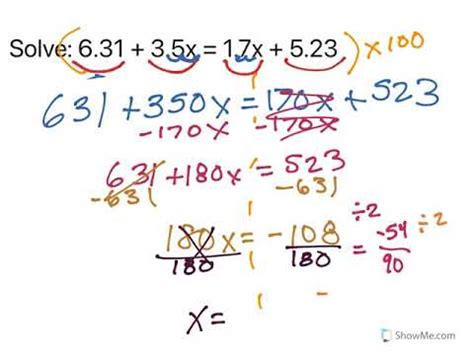 Solve: 6.31 + 3.5x = 1.7x + 5.23 ) x100
631 + 350x = 170x + 523
-170x -170x
631 + 180x = 523
-631 -631
180x = -108 ÷2 -54 ÷2
180 180 = 90
x = -
ShowMe.com